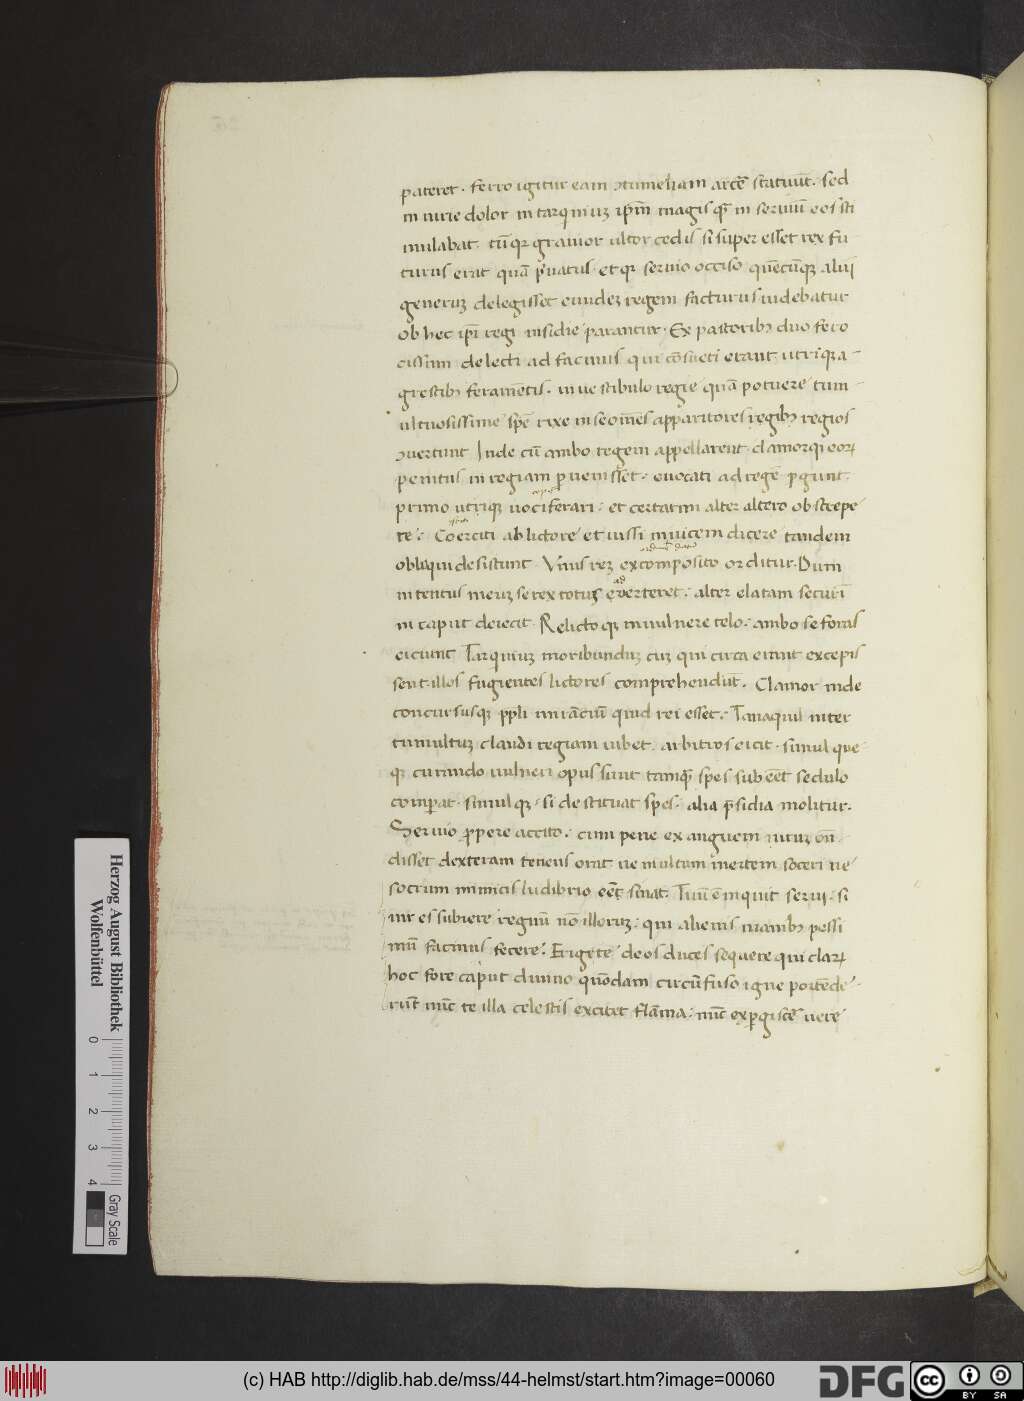 pateret · ferro igitur eam ɔtumeliam arcē statuūt · sed
in iurie dolor in tarquiniuz ip̄m magis quā in seruiū eos sti
mulabat · tū qꝛ grauior ultor cedis si super esset rex fu
turus erat quā p̄uatus · et qꝛ seruio occiso quēcūqꝫ aliū
generuz delegisset eundez regem facturus uidebatur
ob hec ip̄i regi insidie parantur · Ex pastoribꝫ duo fero
cissimi delecti ad facinus qui cōsueti erant utriqꝫ a
grestibꝫ feramētis · in uestibulo regie quā potuere tum
ultuosissime spē rixe in se om̄es apparitores regibꝫ regios
ɔuertunt Inde cū ambo regem appellarent clamorqꝫ eoꝝ
penitus in regiam ꝑuenisset · euocati ad regē ꝑgunt
primo utriqꝫ uociferari : et certatim alter altero obstrepe
re : Coerciti ab lictore et iussi inuicem dicere tandem
obliqui desistunt · Vnus rez ex composito orditur · Dum
intentus in euz se rex totus euerteret : alter elatam securī
in caput deiecit · Relicto qꝫ in uulnere telo : ambo se foras
eiciunt Tarquiniuz moribunduz cuz qui circa erant excepis
sent illos fugientes lictores comprehendūt · Clamor inde
concursusqꝫ pp̄li mirāciū quid rei esset : Tanaquil inter
tumultuz claudi regiam iubet · arbitros eicit · simul que
qꝫ curando uulneri opus sunt tamquā spes sub eēt sedulo
comparat · simulqꝫ · si destituat spes · alia p̄sidia molitur ·
Seruio ꝓpere accito : cum pene ex anguem uiruz oñ
disset dexteram tenens orat ne inultam mortem soceri ne
socrum inimicis ludibrio eēt sinat · Tuū ē inquit serui · si
uir es subiere regnū nō illoruz : qui alienis manibꝫ pessi
mū facinus fecere : Erige te deos duces sequere qui claꝝ
hoc fore caput diuino quōdam circūfuso igne portēde
rūt nūc te illa celestis excitet flāma : nūc exꝑgisce uere
Herzog August Bibliothek
Wolfenbüttel
0 1 2 3 4
Gray Scale
(c) HAB http://diglib.hab.de/mss/44-helmst/start.htm?image=00060
DFG
cc BY SA